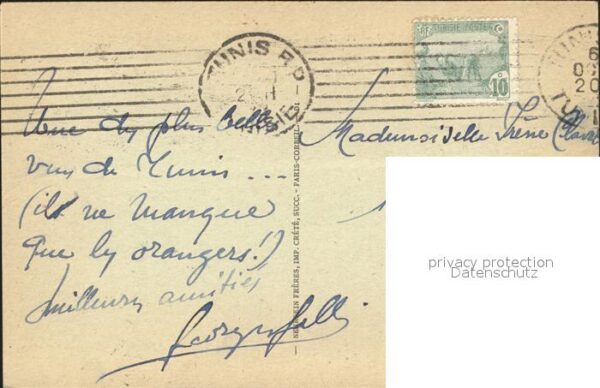 TUNIS R.P.
RF TUNISIE POSTES
10
Une des plus belles
vues de Tunis ...
(il ne manque
que les orangers!)
meilleures amitiés
Mademoiselle Irène
NEURDEIN FRÈRES, IMP. CRÉTÉ, SUCC. - PARIS-CORBEIL
privacy protection
Datenschutz